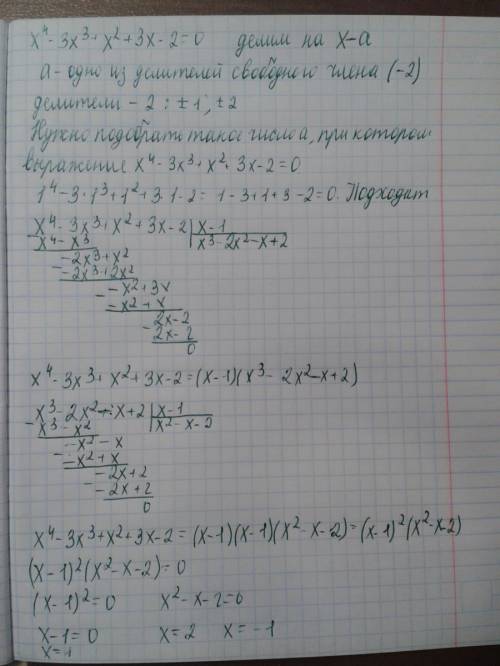 x⁴-3x³+x²+3x-2=0 делим на x-a
a - одно из делителей свободного члена (-2)
делители - 2 : ±1; ±2
Нужно подобрать такое число a, при котором
выражение x⁴-3x³+x²+3x-2=0
1⁴-3·1³+1²+3·1-2=1-3+1+3-2=0. Подходит
x⁴-3x³+x²+3x-2 | x-1
x⁴-x³ x³-2x²-x+2
-2x³+x²
-2x³+2x²
-x²+3x
-x²+x
2x-2
2x-2
0
x⁴-3x³+x²+3x-2=(x-1)(x³-2x²-x+2)
x³-2x²-x+2 | x-1
x³-x² x²-x-2
-x²-x
-x²+x
-2x+2
-2x+2
0
x⁴-3x³+x²+3x-2=(x-1)(x-1)(x²-x-2)=(x-1)²(x²-x-2)
(x-1)²(x²-x-2)=0
(x-1)²=0 x²-x-2=0
x-1=0 x=2 x=-1
x=1